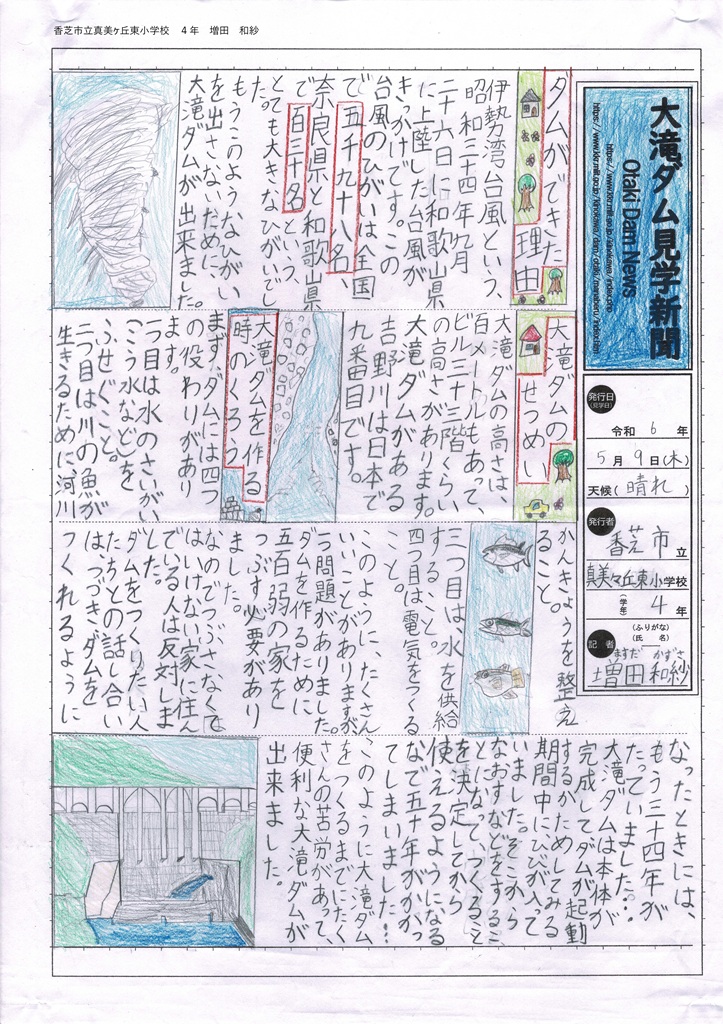 香芝市立真美ヶ丘東小学校　4年　増田　和紗
大滝ダム見学新聞
Otaki Dam News
発行日
(見学日)
令和 6 年
5月9日(木)
天候(晴れ)
発行者
香芝市立
真美ヶ丘東小学校
(学年) 4年
記者
(ふりがな)
(氏　名)
ますだ かずさ
増田和紗
ダムができた理由
伊勢湾台風という、
昭和三十四年九月
二十六日に和歌山県
に上陸した台風が
きっかけです。この
台風のひがいは全国
で五千九十八名、
奈良県と和歌山県
で百三十名という、
とても大きなひがいでし
た。
もうこのようなひがい
を出さないために、
大滝ダムが出来ました。
大滝ダムのせつめい
大滝ダムの高さは、
百メートルもあって、
ビル三十三階くらい
の高さがあります。
大滝ダムがある
吉野川は日本で
九番目です。
大滝ダムを作る
時のくろう
まず、ダムには四つ
の役わりがあり
ます。
一つ目は水のさいがい
こう水などを
ふせぐこと。
二つ目は川の魚が
生きるために、河川
かんきょうを整え
ること。
三つ目は、水を供給
すること。
四つ目は電気をつくる
こと。
このように、たくさん
いいことがありますが
一つ問題がありました。
ダムを作るために
五百弱の家を
つぶす必要があり
ました。
なのでつぶさなくて
はいけない家に住ん
でいる人は反対しま
した。
ダムをつくりたい人
たちとの話し合い
はつづきダムを
つくれるように
なったときには、
もう三十四年が
たっていました…
大滝ダムは本体が
完成してダムが起動
するかためしてみる
期間中にひびが入って
いました。そこから
なおすなどをするこ
とになって、つくること
を決定してから
使えるようになる
なで五十年がかかっ
てしまいました…
このように大滝ダム
をつくるまでにたく
さんの苦労があって、
便利な大滝ダムが
出来ました。